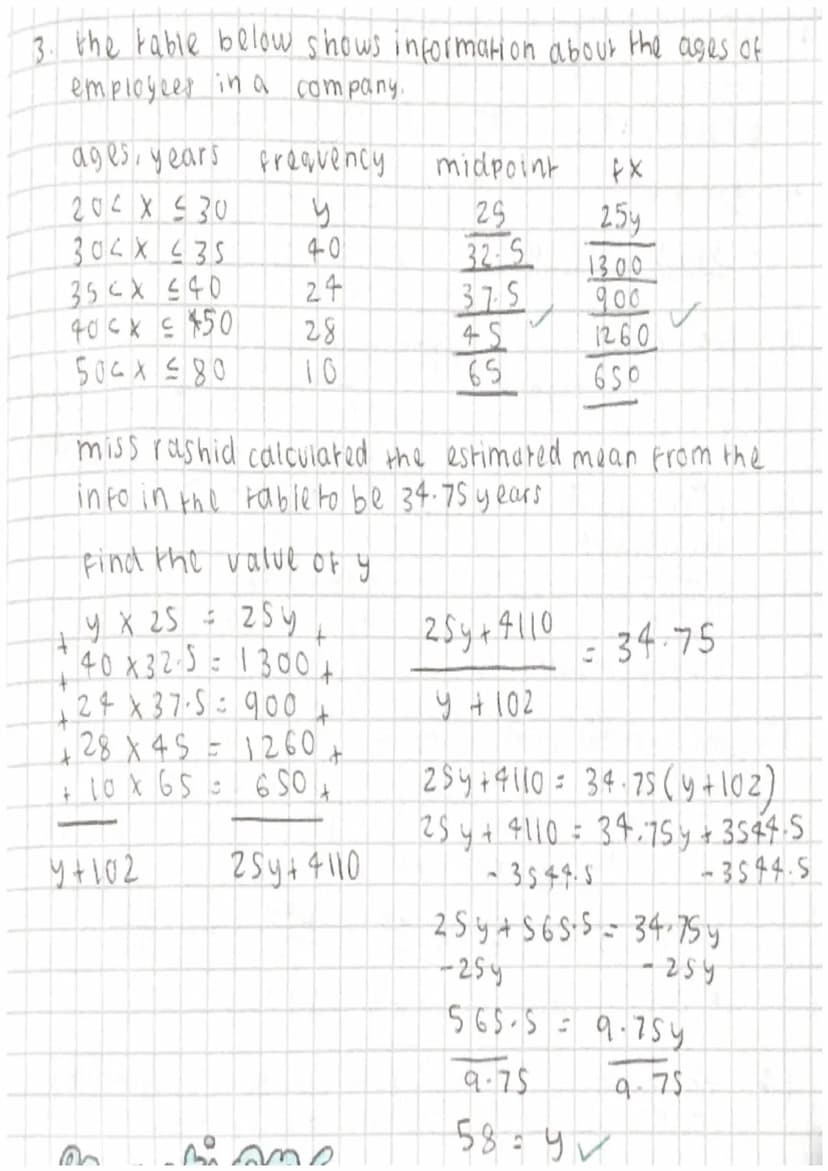 3. the table below shows information about the ages of
employees in a company.
ages, years frequency midpoint fx
20 < x ≤ 30 y 25 25y
30 < x ≤ 35 40 32.5 1300
35 < x ≤ 40 24 37.5 900
40 < x ≤ 50 28 45 1260
50 < x ≤ 80 10 65 650
miss rashid calculated the estimated mean from the
info in the table to be 34.75 years
Find the value of y
+ y × 25 = 25y +
+ 40 × 32.5 = 1300 +
+ 24 × 37.5 = 900 +
+ 28 × 45 = 1260 +
+ 10 × 65 = 650 +
y + 102 25y + 4110
25y + 4110 = 34.75
y + 102
25y + 4110 = 34.75 (y + 102)
25y + 4110 = 34.75y + 3544.5
- 3544.5 - 3544.5
25y + 565.5 = 34.75y
-25y - 25y
565.5 = 9.75y
9.75 9.75
58 = y